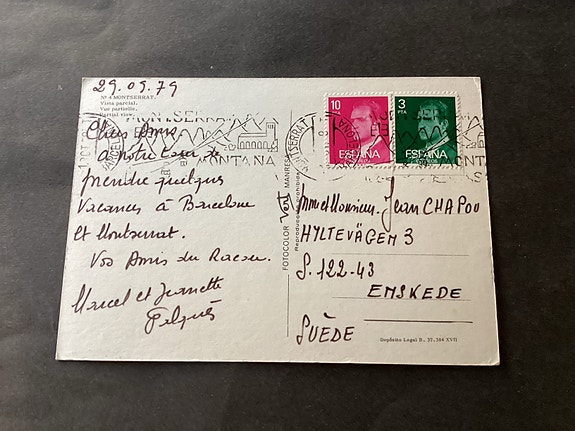 29.09.79
Nº 4 MONTSERRAT.
Vista parcial.
Vue partielle.
Partial view.
Chers Amis
a notre tour de
prendre quelques
Vacances à Barcelone
et Montserrat.
Vos Amis du
Marcel et Jeannette
FOTOCOLOR Vert MANRESA
Reproducción prohibida
MONTSERRAT
MONTAÑA
10
ESPAÑA
3
PTA
ESPAÑA
Mme et Monsieur. Jean CHAPOU
HYLTEVÄGEN 3
S. 122-43
ENSKEDE
SUÈDE
Depósito Legal B. 37.384 XVII